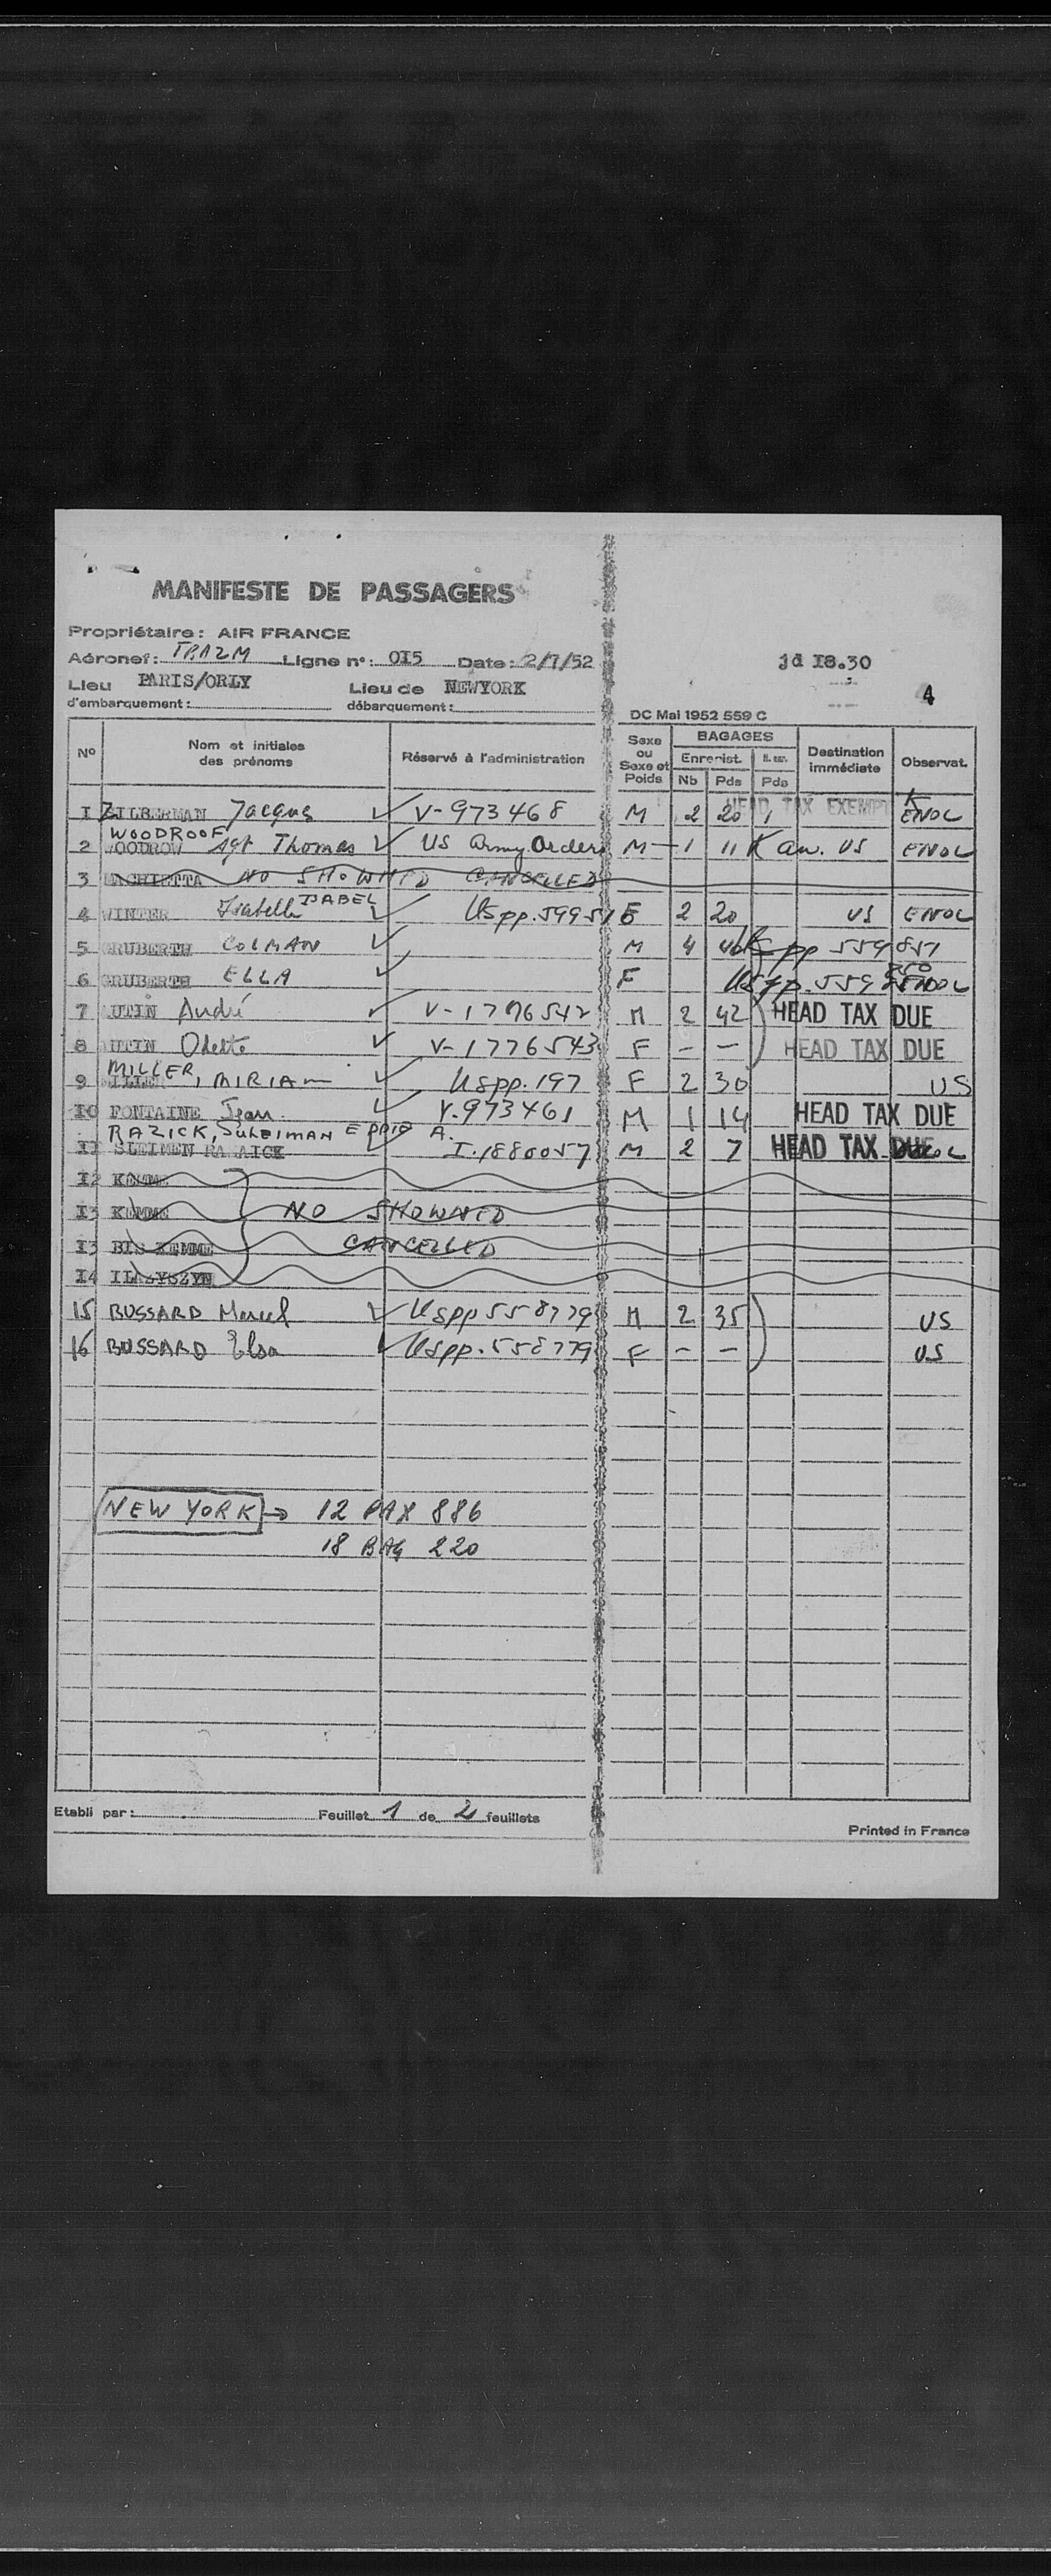 MANIFESTE DE PASSAGERS
Propriétaire: AIR FRANCE
Aéronef: Ligne n°: 0I5 Date: 2/7/52 jd I8.30
Lieu d'embarquement: PARIS/ORLY Lieu de débarquement: NEWYORK 4
DC Mai 1952 559 C
N° Nom et initiales des prénoms Réservé à l'administration Sexe ou Sexe et Poids BAGAGES Enregist. Nb Pds Pds Destination immédiate Observat.
I ZILBERMAN Jacques V-973468 M 2 20 HEAD TAX EXEMPT K ENOL
WOODROOF
2 WOODROW Sgt Thomas US Army Orders M 1 11 K US ENOL
3 NO SHOWNED CANCELLED
4 WINTER Isabelle ISABEL US pp. F 2 20 US ENOL
5 GRUBERTH COLMAN M 4 US pp 559851
6 GRUBERTH ELLA F US pp. 559
7 UTIN André V-1776542 M 2 42 HEAD TAX DUE
8 UTIN Odette V-1776543 F - - HEAD TAX DUE
MILLER, MIRIAM
9 US pp. 197 F 2 30 US
I0 FONTAINE Jean V.973461 M 1 14 HEAD TAX DUE
RAZICK, SULEIMAN A.
II SLEIMEN I.1880057 M 2 7 HEAD TAX DUE
I2 KEMME
I3 KEMME NO SHOWNED
I3 BIS KEMME CANCELLED
I4
15 BUSSARD Marcel US pp 558779 M 2 35 US
16 BUSSARD Elsa US pp. 558779 F - - US
NEW YORK → 12 PAX 886
18 BAG 220
Etabli par: Feuillet 1 de 2 feuillets
Printed in France